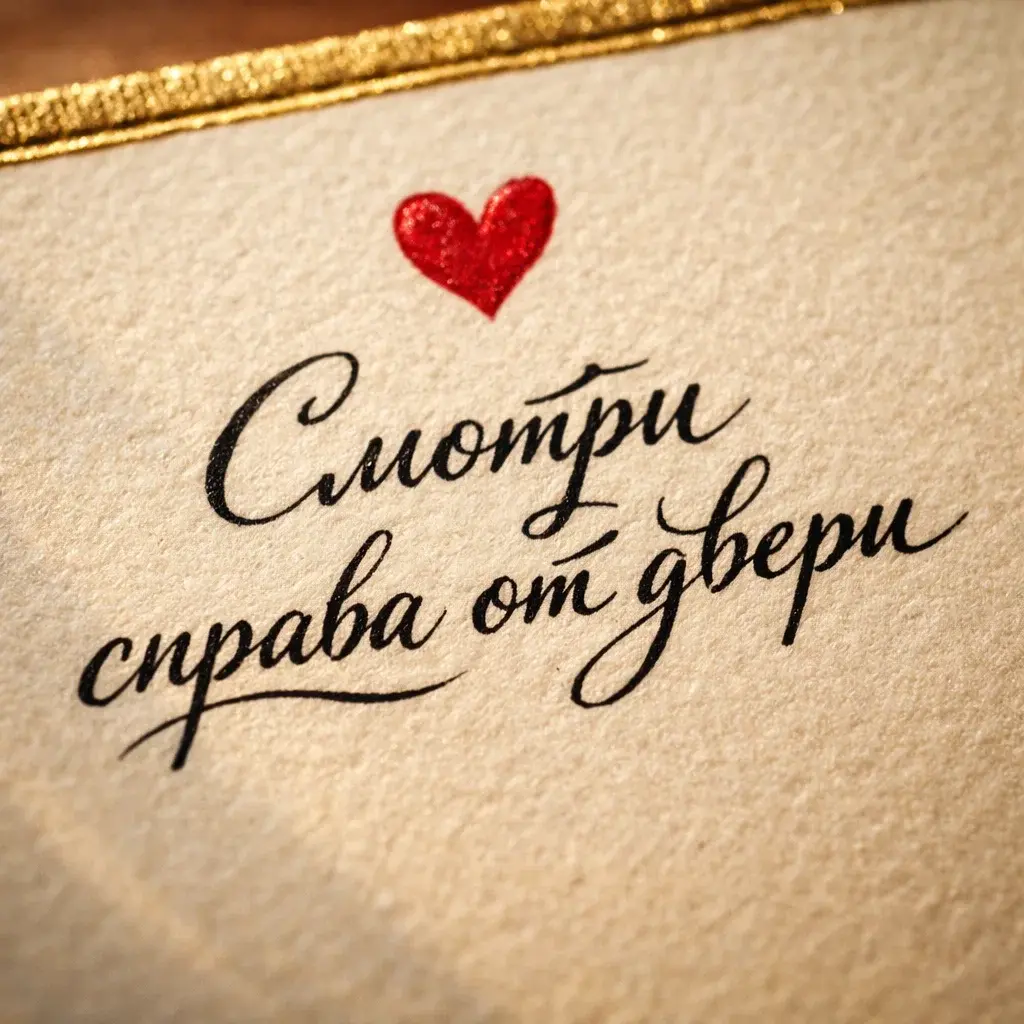 Смотри
справа от двери